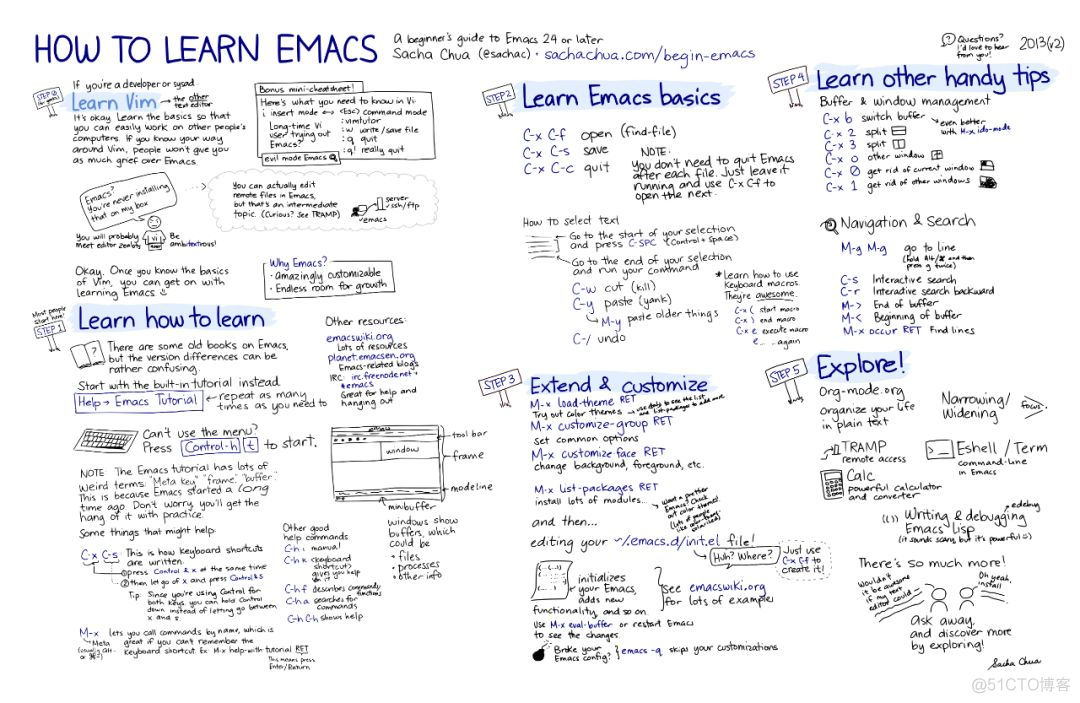 HOW TO LEARN EMACS
A beginner's guide to Emacs 24 or later
Sacha Chua (@sachac) · sachachua.com/begin-emacs
Questions?
I'd love to hear
from you!
2013(v2)
STEP 0
If you're a developer or sysad...
Learn Vim → the other
text editor
It's okay. Learn the basics so that
you can easily work on other people's
computers. If you know your way
around Vim, people won't give you
as much grief over Emacs.
Bonus mini-cheatsheet!
Here's what you need to know in Vi:
i insert mode ↔ <Esc> command mode
Long-time Vi
user trying out
Emacs?
:vimtutor
:w write/save file
:q quit
:q! really quit
evil mode Emacs
Emacs?
You're never installing
that on my box
You can actually edit
remote files in Emacs,
but that's an intermediate
topic. (Curious? See TRAMP)
server
ssh/ftp
emacs
You will probably
meet editor zealots
vi
Be
ambitextrous!
Okay. Once you know the basics
of Vim, you can get on with
learning Emacs
Why Emacs?
· amazingly customizable
· Endless room for growth
Most people
start here!
STEP 1
Learn how to learn
There are some old books on Emacs,
but the version differences can be
rather confusing.
Start with the built-in tutorial instead
Help → Emacs Tutorial ← repeat as many
times as you need to
Can't use the menu?
Press Control-h t to start.
NOTE: The Emacs tutorial has lots of
weird terms: "Meta key" "frame" "buffer"
This is because Emacs started a long
time ago. Don't worry, you'll get the
hang of it with practice.
Some things that might help:
C-x C-s This is how keyboard shortcuts
are written.
① press Control & x at the same time
② then let go of x and press Control & s
Tip: Since you're using Control for
both keys, you can hold Control
down instead of letting go between
x and s.
M-x lets you call commands by name, which is
great if you can't remember the
keyboard shortcut. Ex: M-x help-with-tutorial RET
Meta
(usually Alt-
or ⌘-)
This means press
Enter/Return
Other resources:
emacswiki.org
Lots of resources
planet.emacsen.org
Emacs-related blogs
IRC: irc.freenode.net
#emacs
Great for help and
hanging out
window
tool bar
frame
modeline
minibuffer
windows show
buffers, which
could be
· files
· processes
· other info
Other good
help commands
C-h i manual
C-h k (keyboard
shortcut)
gives you help
on it
C-h f describes commands/
functions
C-h a searches for
commands
C-h C-h shows help
STEP 2
Learn Emacs basics
C-x C-f open (find-file)
C-x C-s save
C-x C-c quit
NOTE:
You don't need to quit Emacs
after each file. Just leave it
running and use C-x C-f to
open the next.
How to select text
Go to the start of your selection
and press C-SPC (Control + Space)
Go to the end of your selection
and run your command
C-w cut (kill)
C-y paste (yank)
M-y paste older things
C-/ undo
* Learn how to use
Keyboard macros.
They're awesome.
C-x ( start macro
C-x ) end macro
C-x e execute macro
e... ...again
STEP 3
Extend & customize
M-x load-theme RET
Try out color themes
M-x customize-group RET
Set common options
M-x customize-face RET
change background, foreground, etc.
M-x list-packages RET
install lots of modules...
Want a prettier
Emacs? Check
out color themes!
(Lots of people
like solarized)
and then...
editing your ~/.emacs.d/init.el file!
Huh? Where?
Just use
C-x C-f to
create it!
initializes
your Emacs,
adds new
functionality, and so on
see emacswiki.org
for lots of examples
Use M-x eval-buffer or restart Emacs
to see the changes.
Broke your
Emacs config? } emacs -q skips your customizations
STEP 4
Learn other handy tips
Buffer & window management
C-x b switch buffer
even better
with M-x ido-mode
C-x 2 split
C-x 3 split
C-x o other window
C-x 0 get rid of current window
C-x 1 get rid of other windows
Navigation & Search
M-g M-g go to line
(hold Alt/⌘ and then
press g twice)
C-s Interactive search
C-r Interactive search backward
M-> End of buffer
M-< Beginning of buffer
M-x occur RET Find lines
STEP 5
Explore!
Org-mode.org
organize your life
in plain text
Narrowing/
Widening
focus
TRAMP
remote access
Eshell / Term
command-line
in Emacs
Calc
powerful calculator
and converter
Writing & debugging
Emacs Lisp
edebug
(it sounds scary, but it's powerful =)
There's so much more!
Wouldn't
it be awesome
if my text
editor could...
Oh yeah,
install
Ask away,
and discover more
by exploring!
Sacha Chua
@51CTO博客